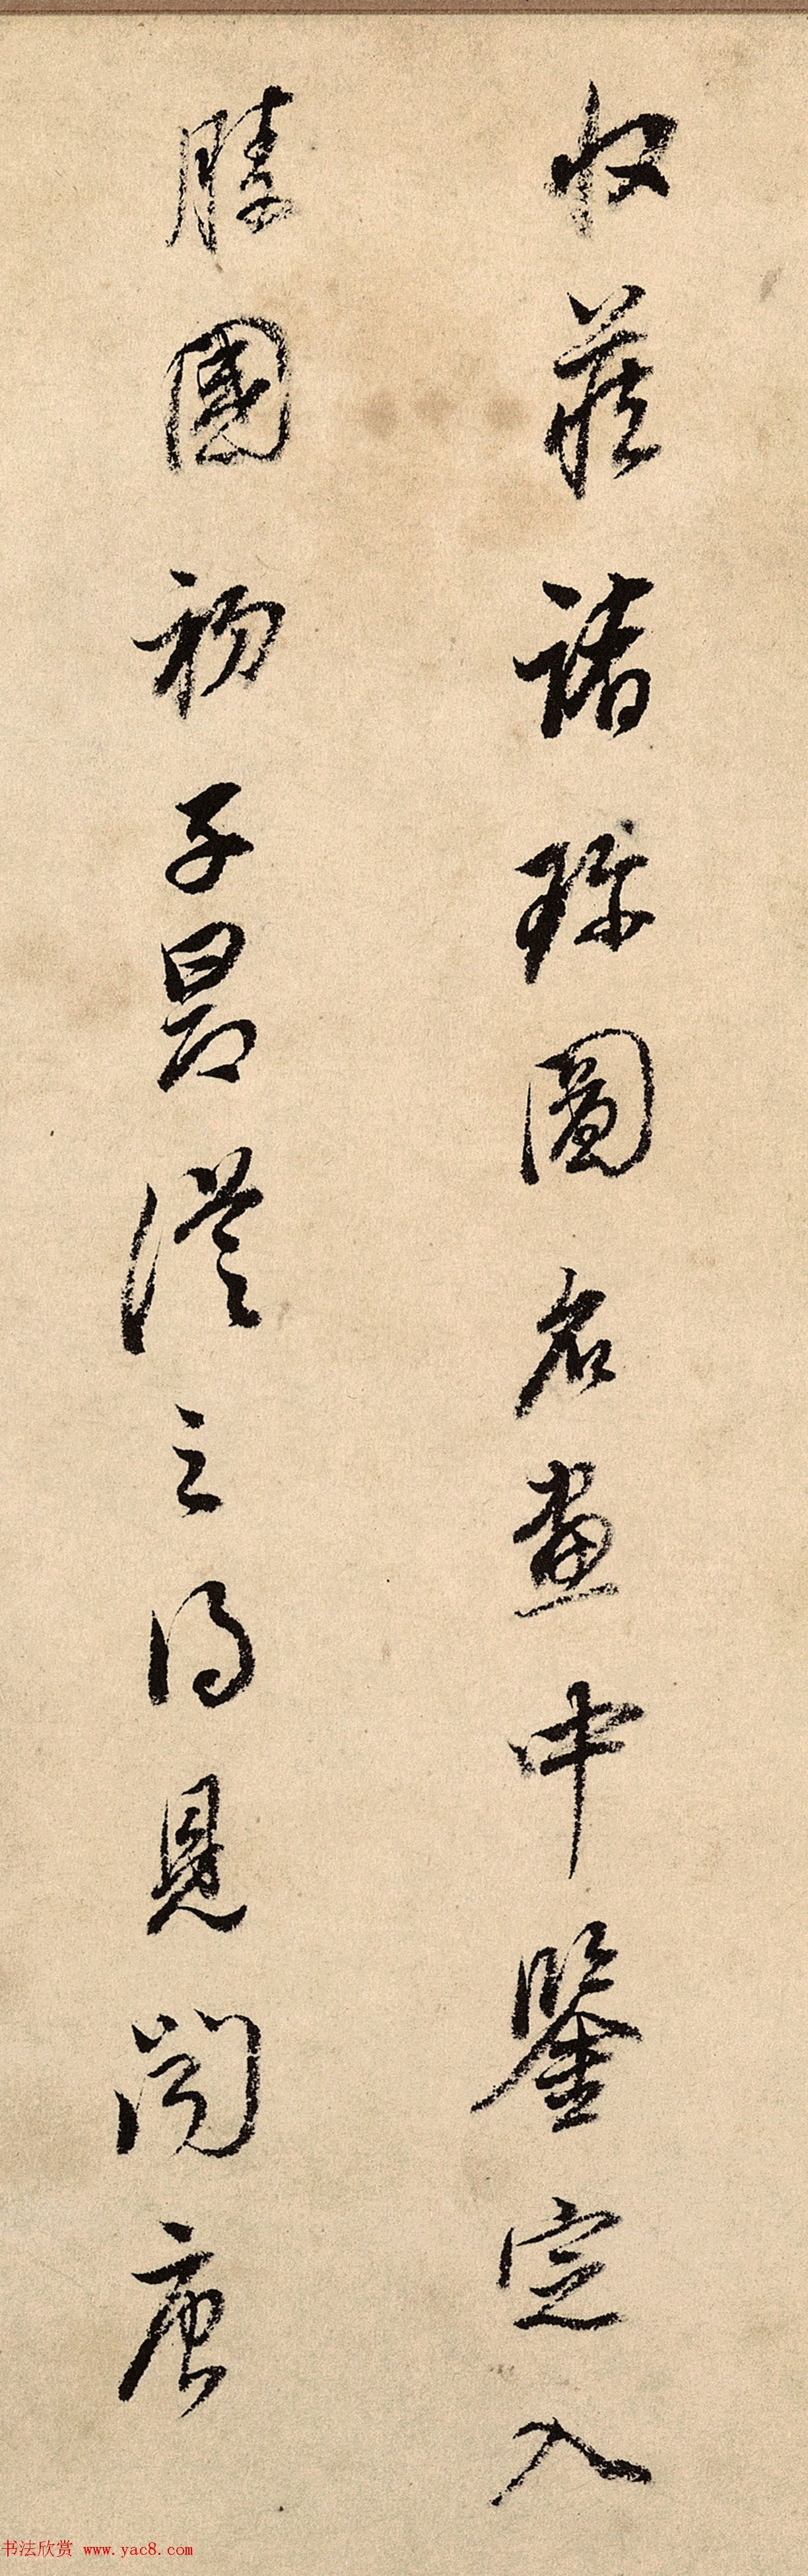 收藏諸珎圖名畫中鑒定入
勝國初子昂從之得見聞廣
书法欣赏 www.yac8.com